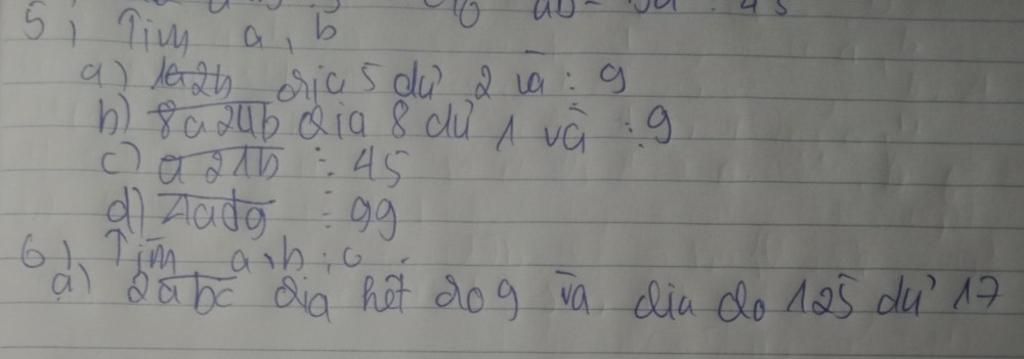 5, Tìm a, b
a) 1a2b chia 5 dư 2 và : 9
b) 8a24b chia 8 dư 1 và : 9
c) a21b ⋮ 45
d) ⋮ 99
6). Tìm a, b, c.
a) 2abc chia hết cho 9 và chia cho 125 dư 17